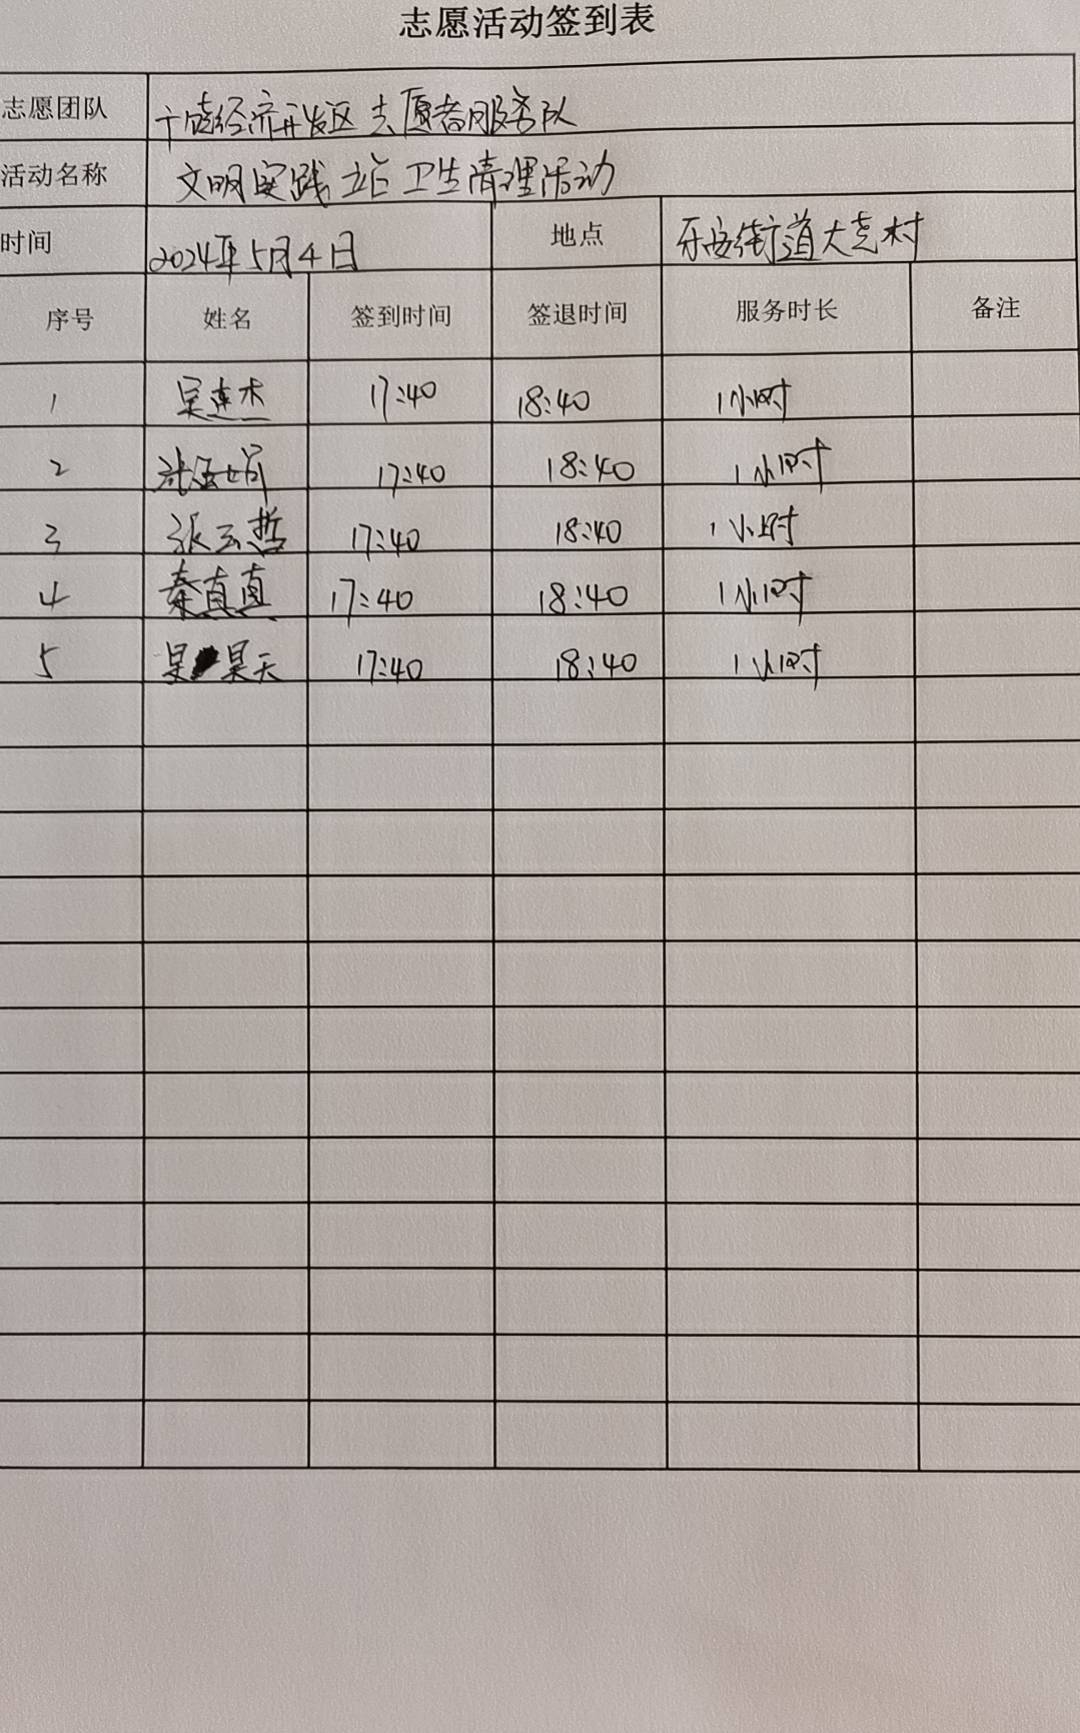 志愿活动签到表
志愿团队 广饶经济开发区志愿者服务队
活动名称 文明实践站卫生清理活动
时间 2024年5月4日 地点 乐安街道大尧村
序号 姓名 签到时间 签退时间 服务时长 备注
1 17:40 18:40 1小时
2 17:40 18:40 1小时
3 张云哲 17:40 18:40 1小时
4 秦真真 17:40 18:40 1小时
5 昊天 17:40 18:40 1小时